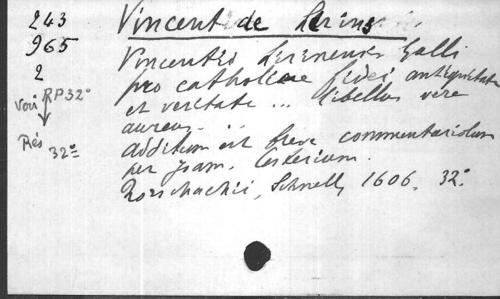 243
965
2
Voir RP 32°
Rés 32°
Vincent de Lérins
Vincentio Lirinensis Galli
pro catholicae fidei antiquitate
et veritate ... libellus vere
aureus ...
Additum est breve commentariolum
per Joan. Costerium.
Rorschachii, Schnell, 1606. 32°